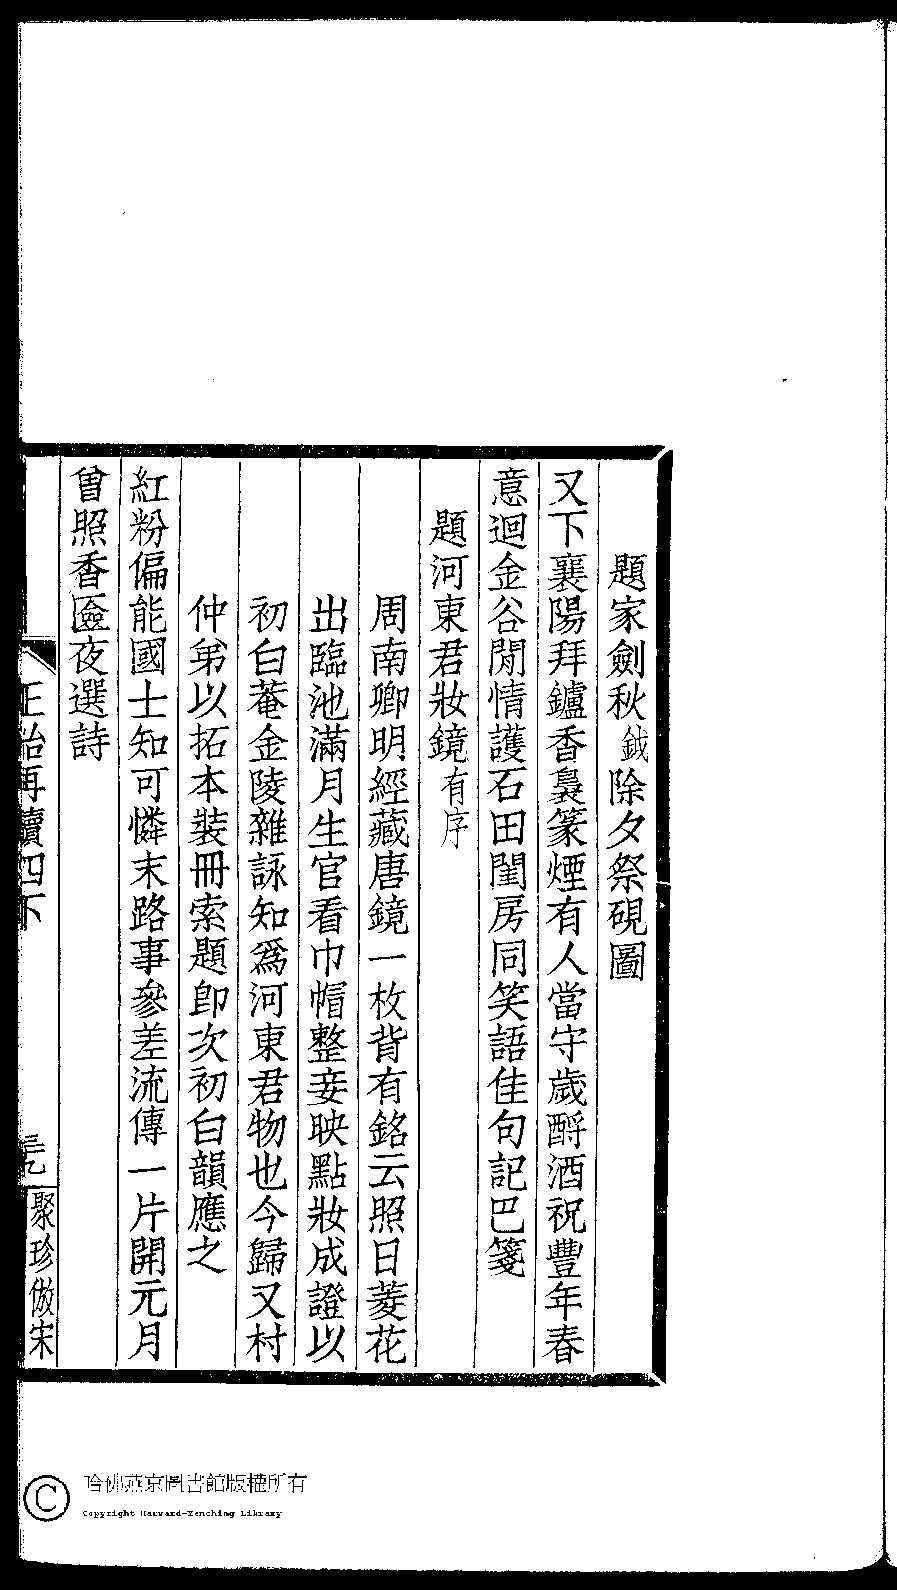 題家劍秋鉞除夕祭硯圖
又下襄陽拜鑪香裊篆煙有人當守歲酹酒祝豐年春
意迴金谷閒情護石田閨房同笑語佳句記巴箋
題河東君妝鏡有序
周南卿明經藏唐鏡一枚背有銘云照日菱花
出臨池滿月生官看巾帽整妾映點妝成證以
初白菴金陵雜詠知爲河東君物也今歸又村
仲弟以拓本裝冊索題卽次初白韻應之
紅粉偏能國士知可憐末路事參差流傳一片開元月
曾照香匳夜選詩
正始再續四下
聚珍倣宋
哈佛燕京圖書館版權所有
Copyright Harvard-Yenching Library